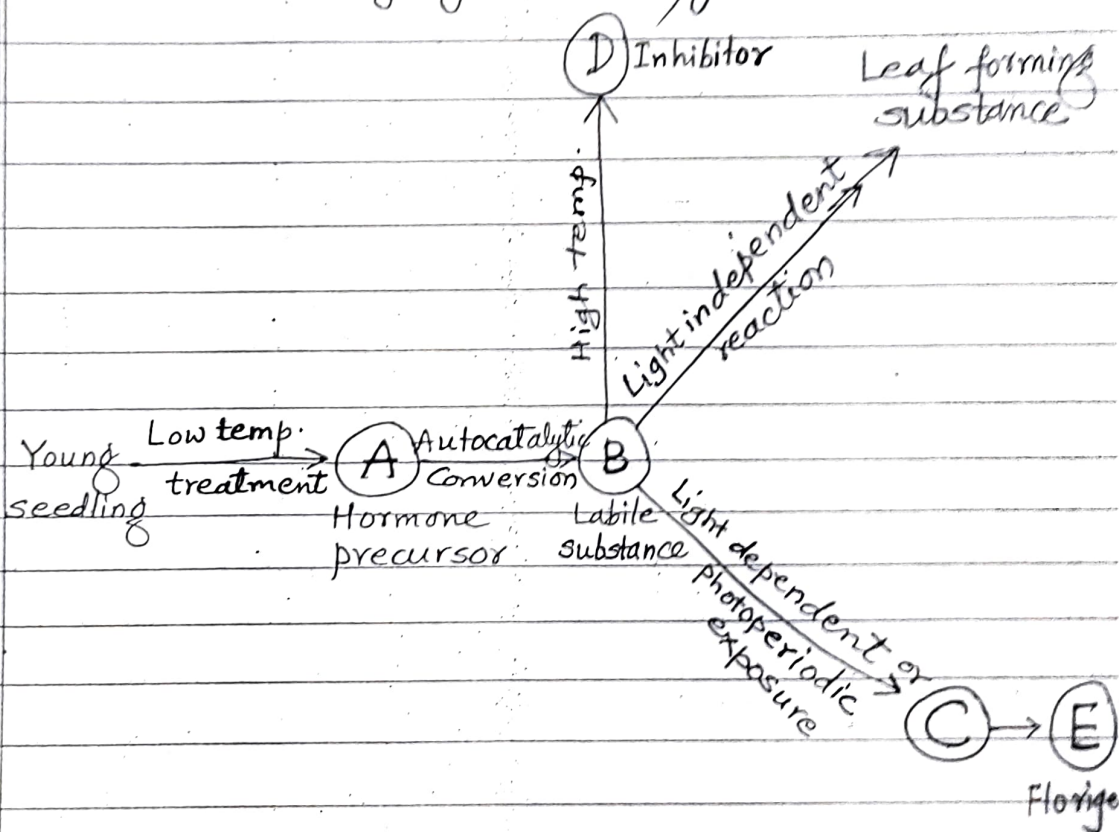 D Inhibitor
Leaf forming
substance
High temp.
Light independent
reaction
Young
seedling
Low temp.
treatment
A
Hormone
precursor
Autocatalytic
Conversion
B
Labile
substance
Light dependent or
photoperiodic
exposure
C
E
Florige